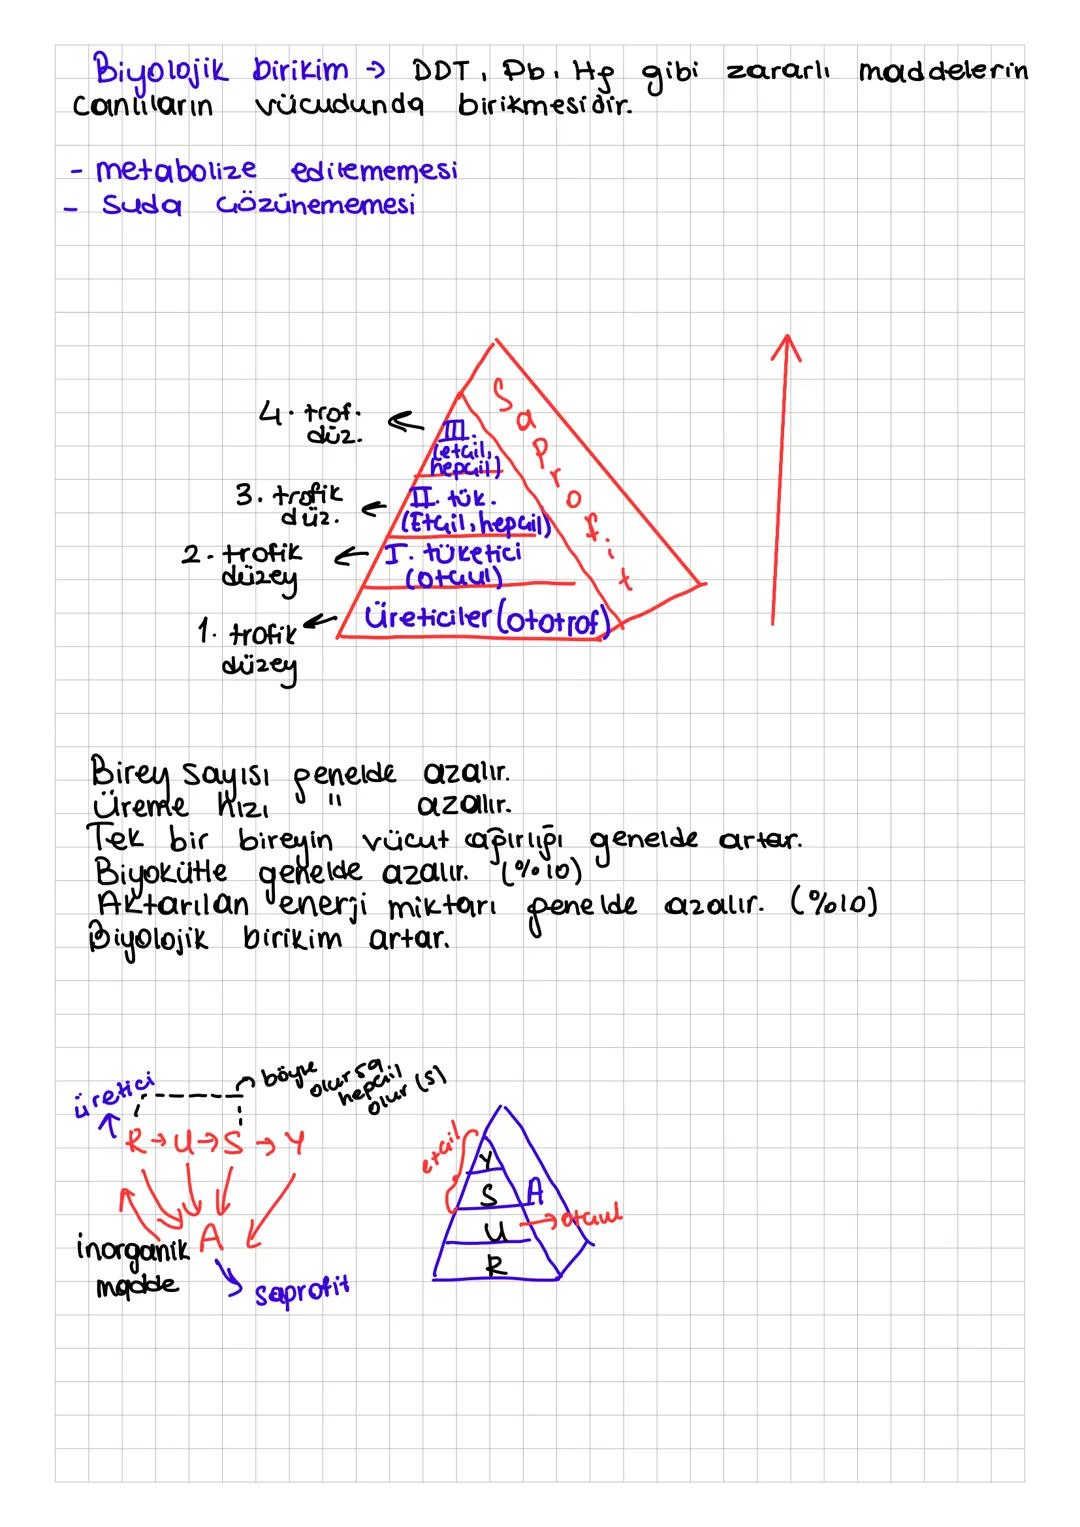 Biyolojik birikim → DDT, Pb, Hg gibi zararlı maddelerin
canlıların vücudunda birikmesidir.
- metabolize edilememesi
- Suda çözünememesi
4. trof. düz.
III. (etçil, hepçil)
Saprofit
3. trofik düz.
II. tük. (Etçil, hepçil)
2. trofik düzey
I. tüketici (otçul)
1. trofik düzey
Üreticiler (ototrof)
Birey sayısı genelde azalır.
Üreme hızı " azalır.
Tek bir bireyin vücut ağırlığı genelde artar.
Biyokütle genelde azalır. (%10)
Aktarılan enerji miktarı genelde azalır. (%10)
Biyolojik birikim artar.
üretici
böyle olursa hepçil olur (S)
R → U → S → Y
A
inorganik madde
saprofit
etçil
Y
S
A
U → otçul
R